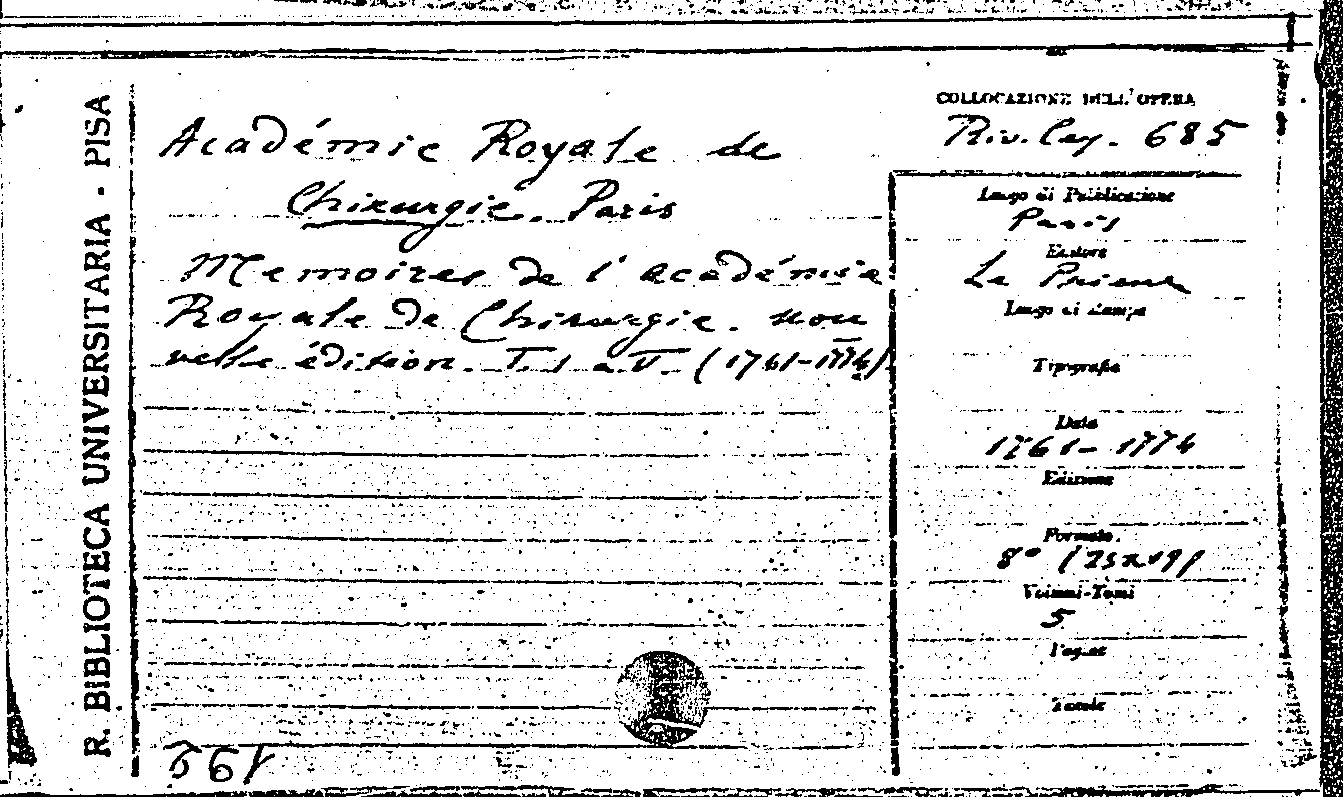 R. BIBLIOTECA UNIVERSITARIA - PISA
COLLOCAZIONE DELL'OPERA
Riv. Cey. 685
Académie Royale de
Chirurgie. Paris
Memoires de l'académie
Royale de Chirurgie. nou
velle édition. T. 1 a V. (1761-1774)
Luogo di Pubblicazione
Paris
Editore
Le Prieur
Luogo di stampa
Tipografia
Data
1761-1774
Edizione
Formato
8° (25x19)
Volumi-Tomi
5
Pagine
Tavole